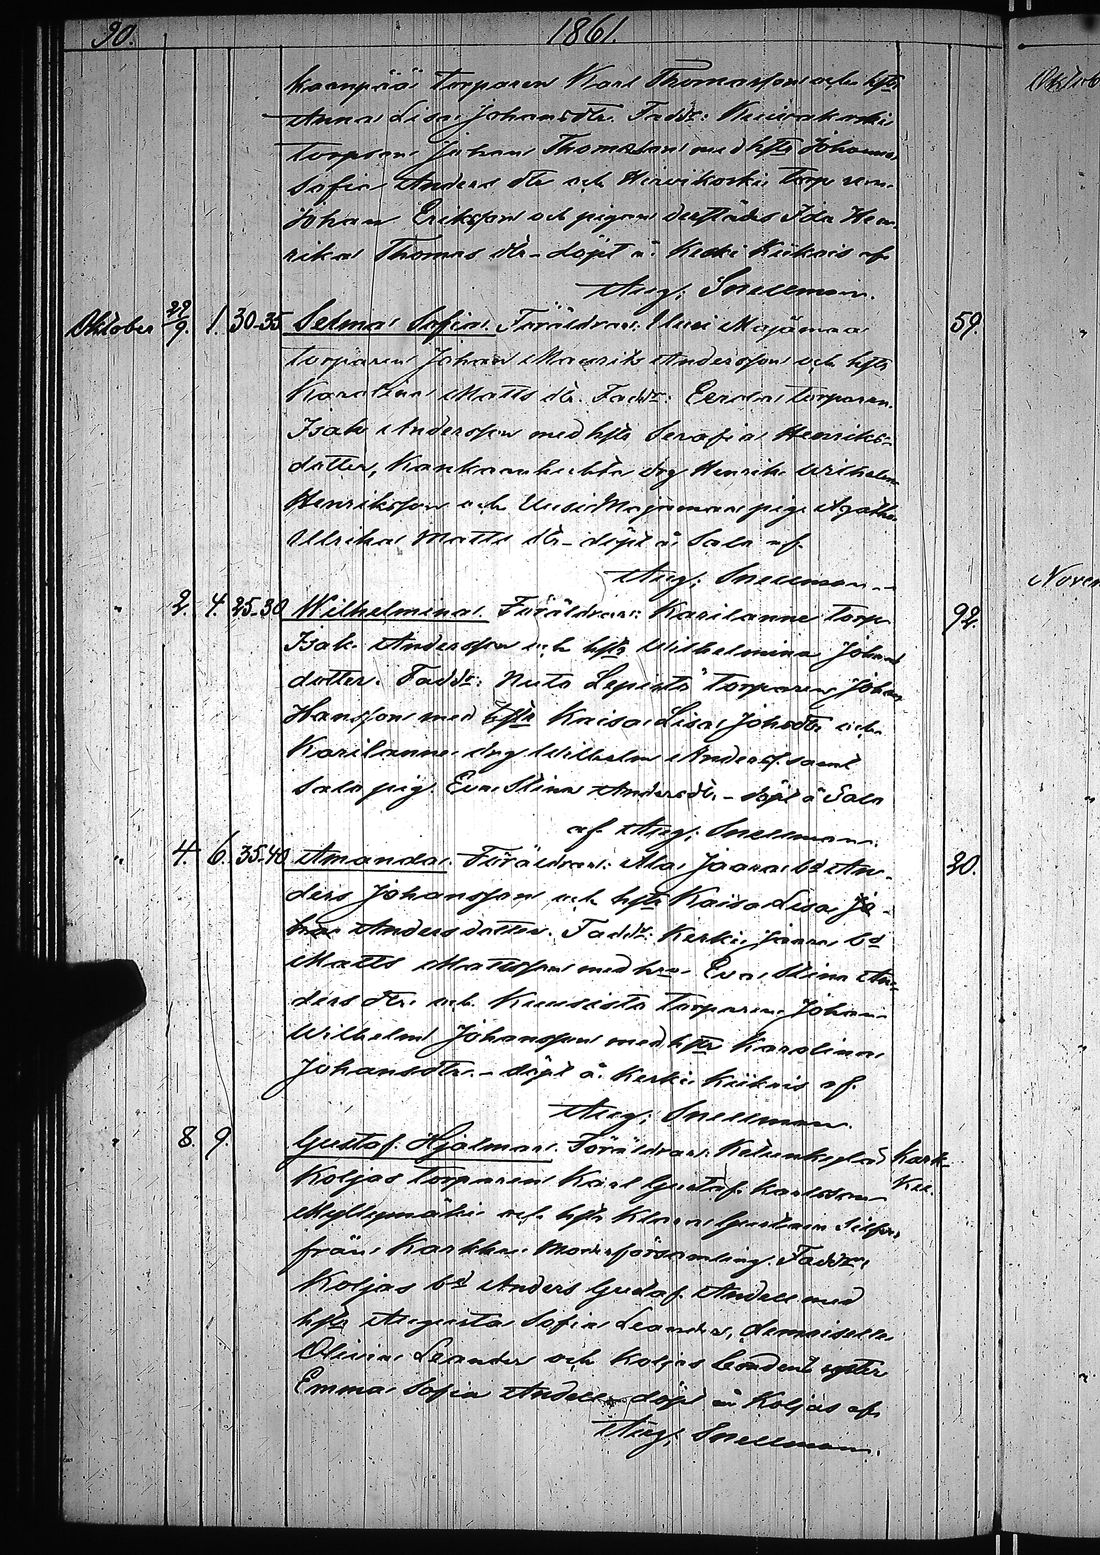 90. 1861.
torparen Karl Thomasson och hstr
Anna Lisa Johansdtr. Fadd:
torparen Johan Thomasson med hstr Johanna
Sofia Anders dtr och torp
Johan Eriksson och pigan derstädes Ida Hen-
rika Thomas dtr – döpt å Keski Kiikois af
Aug: Snellman.
Oktober 29/9. 1. 30-35 Selma Sofia. Föräldrar: Uusi Majamaa 59.
torparen Johan Maurits Andersson och hstr
Karolina Matts dtr. Fadd: torparen
Isak Andersson med hstr Serafia Henriks-
dotter, drg Henrik Wilhelm
Henriksson och Uusi Majamaa pig. Agatha
Ulrika Matts dtr – döpt å Sala af.
Aug: Snellman.
" 2. 4. 25-30 Wilhelmina. Föräldrar: Karilanne torp 92.
Isak Andersson och hstr Wilhelmina Johans
dotter. Fadd: torparen Johan
Hansson med hstr Kaisa Lisa Johsdtr och
Karilanne drg Wilhelm Anderss. samt
Sala pig. Eva Stina Andersdtr – döpt å Sala
af Aug: Snellman.
" 4. 6. 35-40 Amanda. Föräldrar: Ala Jaara bd An- 20.
ders Johansson och hstr Kaisa Lisa Jo-
han Anders dotter. Fadd: Keski Jaara bd
Matts Mattsson med hru Eva Stina An-
ders dtr och Kuusisto torparen Johan
Wilhelm Johansson med hstr Karolina
Johansdtr. – döpt å Keski Kiikois af.
Aug: Snellman.
" 8. 9. Gustaf Hjalmar. Föräldrar: Kark-
Koljas torparen Karl Gustaf Karlsson ku.
Myllymäki och hstr Klara Gustava
från Karkku Moderförsamling. Fadd:
Koljas bd Anders Gustaf Andell med
hstr Augusta Sofia Leander, demoiselle
Olivia Leander och Koljas bondedotter
Emma Sofia Andell – döpt å Koljas af.
Aug: Snellman.
Oktob
Novem